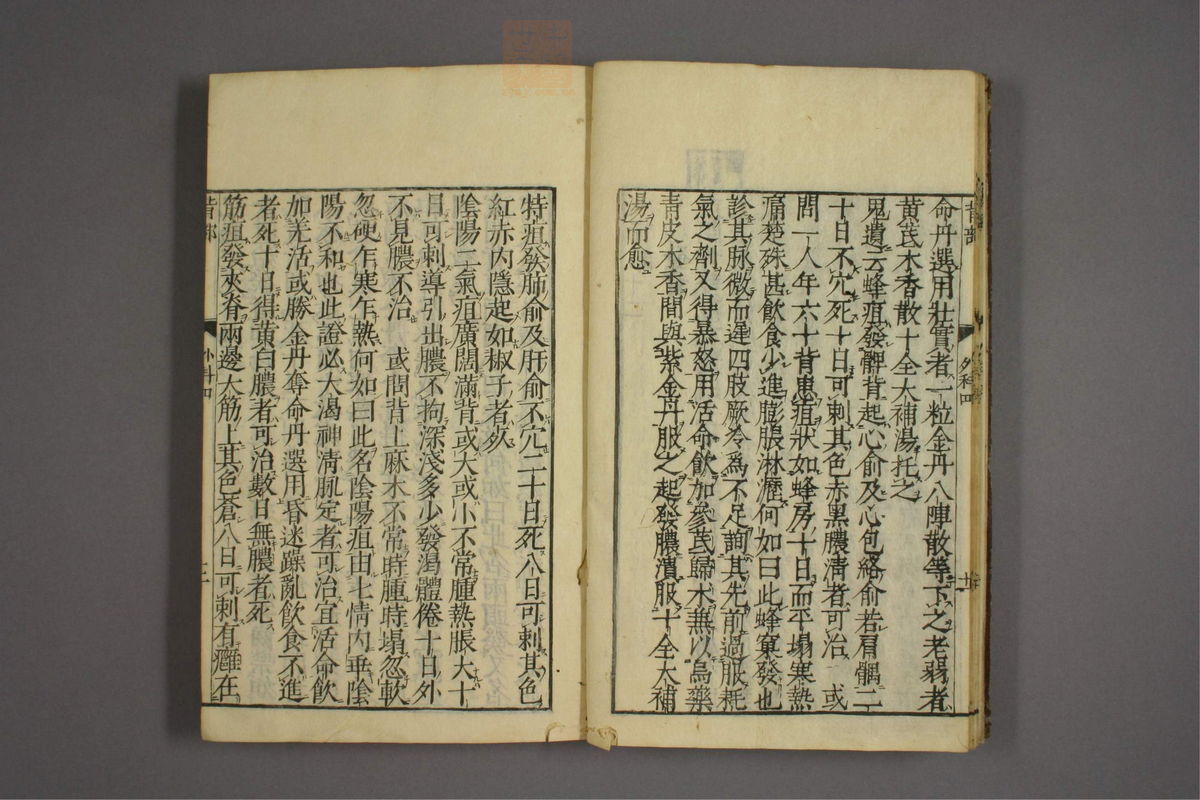 背部
外科四
命丹選用壯實者一粒金丹八陣散等下之老弱者
黃芪木香散十全大補湯托之
鬼遺云蜂疽發髀背起心俞及心包絡俞若肩髃二
十日不穴死十日可刺其色赤黑膿淸者可治　或
問一人年六十背患疽狀如蜂房十日而平塌寒熱
痛楚殊甚飲食少進膨脹淋瀝何如曰此蜂窠發也
診其脉微而遲四肢厥冷爲不足詢其先前過服耗
氣之劑又得暴怒用活命飲加參芪歸木兼以烏藥
靑皮木香間與紫金丹服之起發膿潰服十全大補
湯而愈
特疽發肺俞及肝俞不穴二十日死八日可刺其色
紅赤内隱起如椒子者死
陰陽二氣疽廣闊滿背或大或小不常腫熱脹大十
日可刺導引出膿不拘深淺多少發渴體倦十日外
不見膿不治　或問背上麻木不常時腫時塌忽軟
忽硬乍寒乍熱何如曰此名陰陽疽由七情内乖陰
陽不和也此證必大渴神淸脉定者可治宜活命飲
加羌活或勝金丹奪命丹選用昏迷躁亂飲食不進
者死十日得黃白膿者可治數日無膿者死
筋疽發夾脊兩邊大筋上其色蒼八日可刺有癰在
背部
外科四